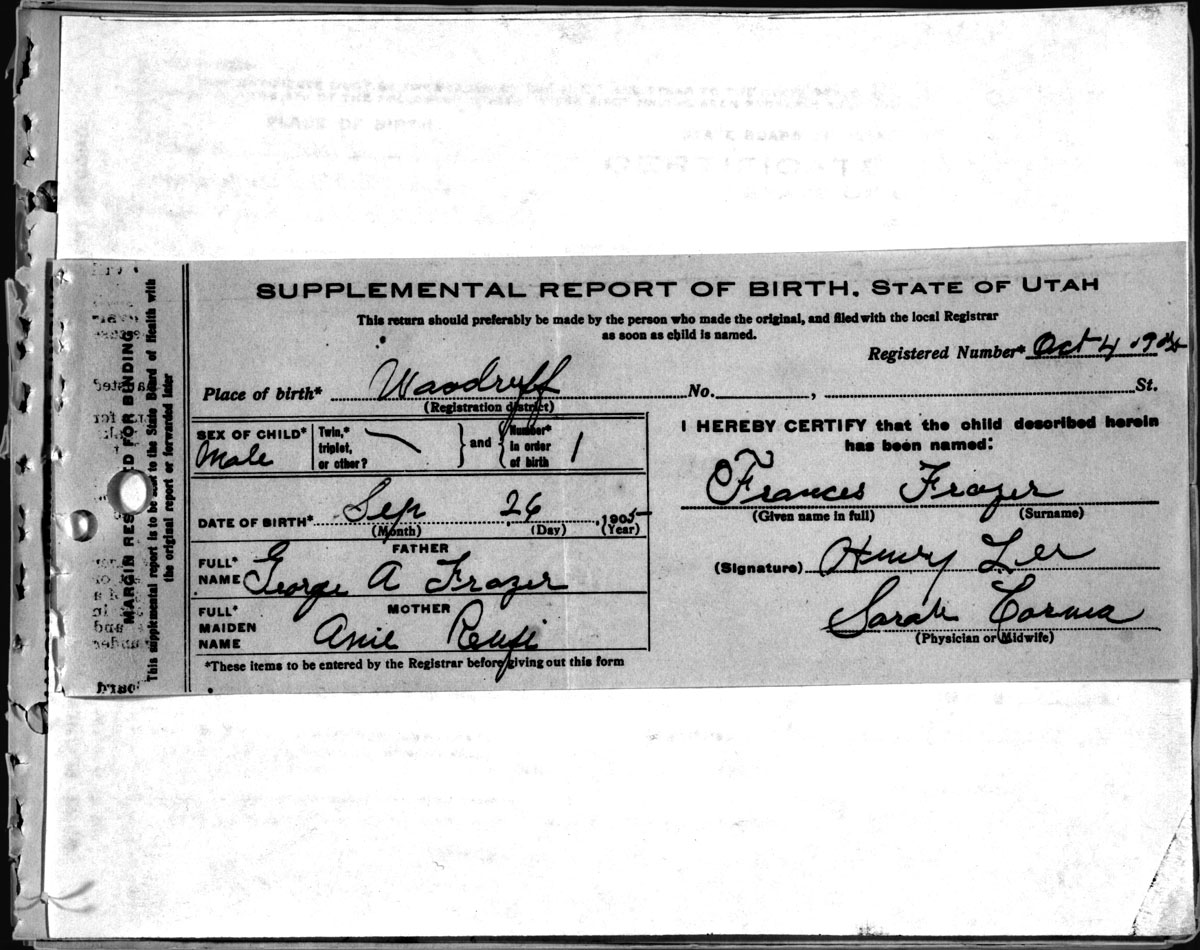 SUPPLEMENTAL REPORT OF BIRTH. STATE OF UTAH
This return should preferably be made by the person who made the original, and filed with the local Registrar
as soon as child is named.
Registered Number* Oct 4 190
Place of birth* Woodruff No. , St.
(Registration district)
SEX OF CHILD* Male
Twin,* triplet, or other? } and { Number* in order of birth 1
DATE OF BIRTH* Sep 26, 1905
(Month) (Day) (Year)
FATHER
FULL* NAME George A Frazer
MOTHER
FULL* MAIDEN NAME Anie
*These items to be entered by the Registrar before giving out this form
I HEREBY CERTIFY that the child described herein
has been named:
Frances Frazer
(Given name in full) (Surname)
(Signature) Henry Lee
Sarah
(Physician or Midwife)
MARGIN RESERVED FOR BINDING
This supplemental report is to be sent to the State Board of Health with
the original report or forwarded later